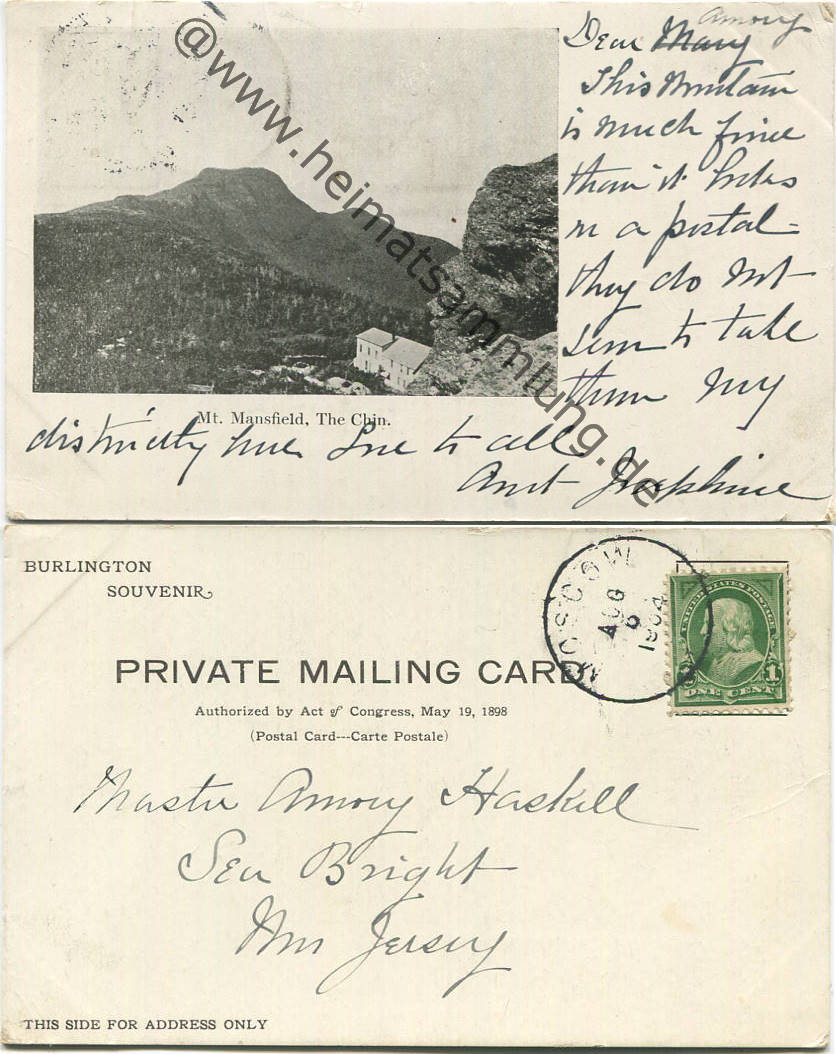 Amory
Dear Mary
This Mountain
is much finer
than it looks
on a postal -
they do not
seem to take
them very
distinctly here. Love to all
Aunt Josephine
Mt. Mansfield, The Chin.
@www.heimatsammlung.de
BURLINGTON
SOUVENIR
MOSCOW
AUG
1904
UNITED STATES POSTAGE
1
ONE CENT
PRIVATE MAILING CARD
Authorized by Act of Congress, May 19, 1898
(Postal Card---Carte Postale)
Master Amory Haskell
Sea Bright
New Jersey
THIS SIDE FOR ADDRESS ONLY